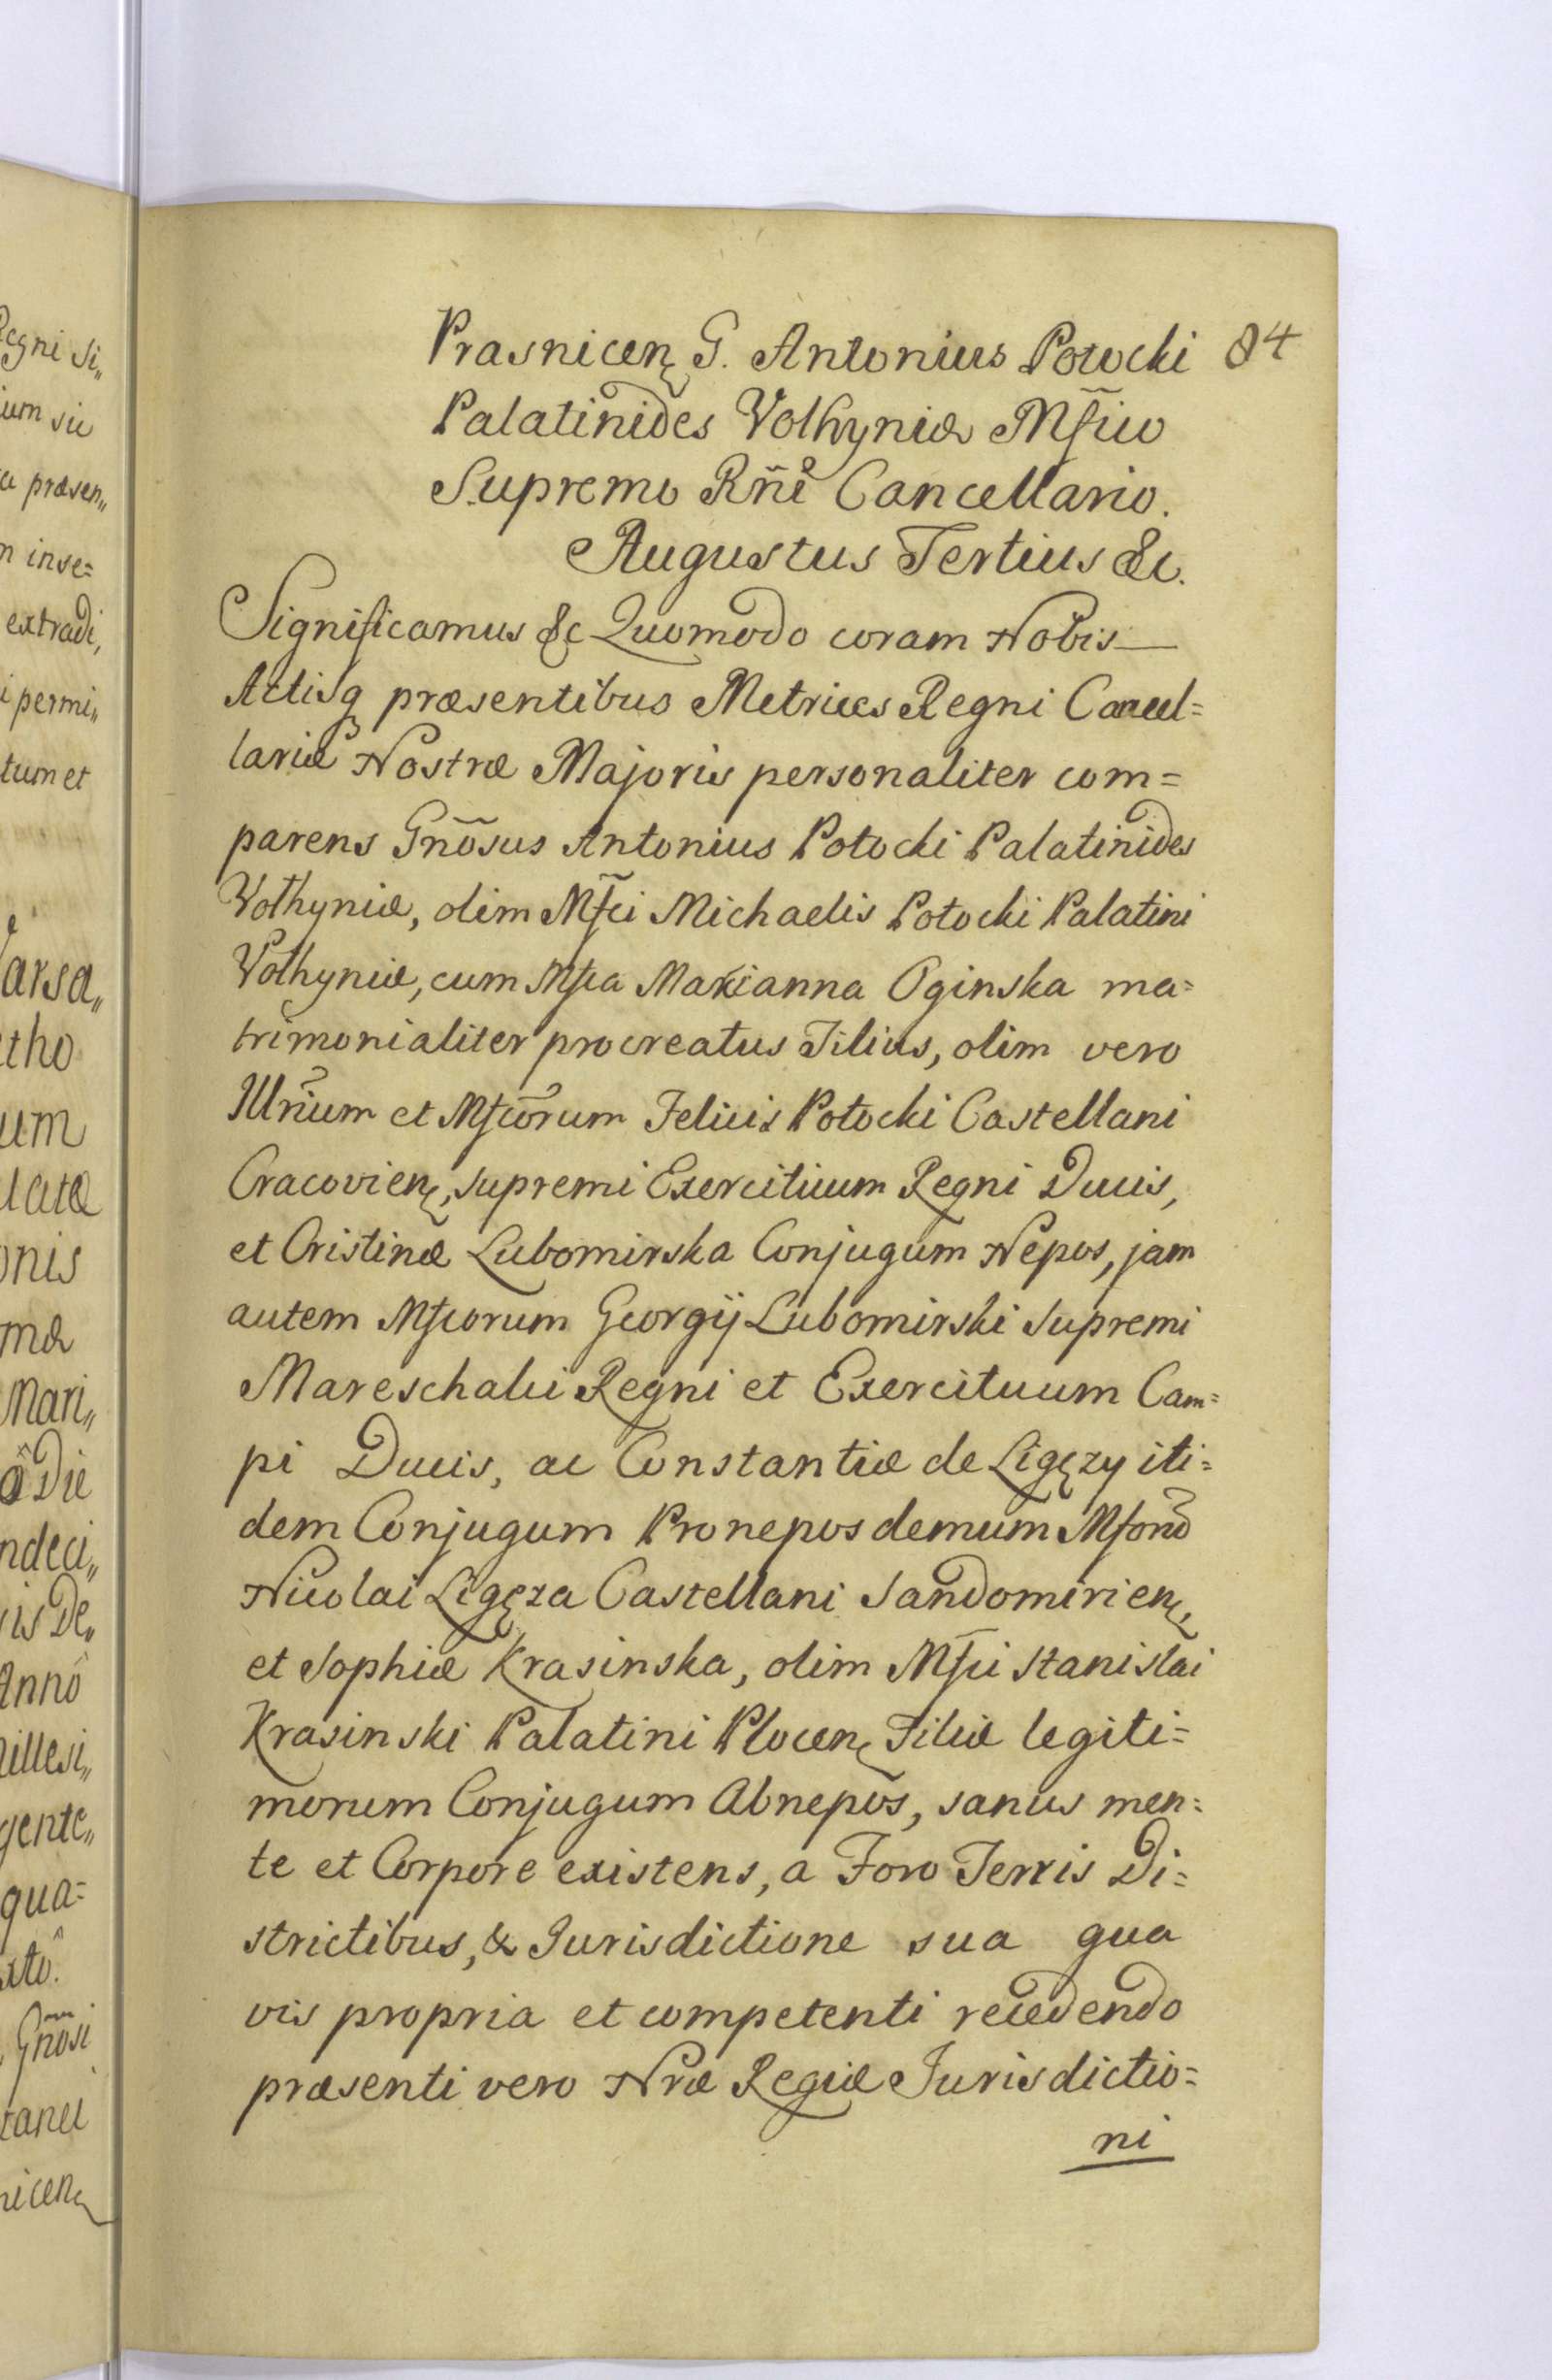 Regni Si„
ium sic
a præsen„
n inse=
extradi,
i permi„
tum et
arsa„
etho
um
latæ
onis
mæ
Mari„
ô Die
ndeci„
is De„
Annô
illesi„
gente„
qua=
xtô.
Gnõsi
tanei
nicen̨
Prasnicen̨ G. Antonius Potocki 84
Palatinides Volhyniæ Mf̃ico
Supremo Rñi Cancellario.
Augustus Tertius &c.
Significamus &c Quomodo coram Nobis—
Actisq præsentibus Metrices Regni Cancel=
lariæ Nostræ Majoris personaliter com=
parens Gnõsus Antonius Potocki Palatinides
Volhyniæ, olim Mf̃ci Michaelis Potocki Palatini
Volhyniæ, cum Mfca Marianna Oginska ma=
trimonialiter procreatus Filius, olim vero
Illr̃ium et Mfcõrum Felicis Potocki Castellani
Cracovien̨, supremi Exercituum Regni Ducis,
et Cristinæ Lubomirska Conjugum Nepos, jam
autem Mfcorum Georgij Lubomirski Supremi
Mareschalci Regni et Exercituum Cam=
pi Ducis, ac Constantiæ de Ligęzy iti=
dem Conjugum Pronepos demum Mfcorũ
Nicolai Ligęza Castellani Sandomirien̨,
et Sophiæ Krasinska, olim Mf̃ci Stanislai
Krasinski Palatini Plocen̨ Filiæ legiti=
morum Conjugum Abnepos, sanus men=
te et Corpore existens, a Foro Terris Di=
strictibus, & Jurisdictione sua qua
vis propria et competenti recedendo
præsenti vero Nræ Regiæ Jurisdictio=
ni